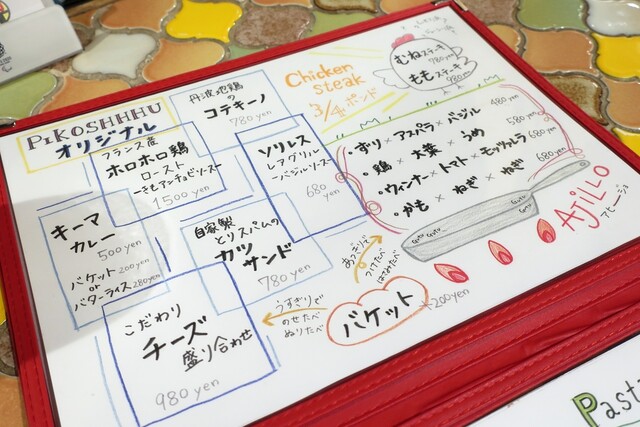 PiKOSHHHU
オリジナル
丹波地鶏の
コテキーノ
780 yen
フランス産
ホロホロ鶏
ロースト
1500 yen
ソリレス
レアグリル
バジルソース
680
yen
キーマ
カレー
500 yen
バケット 200 yen
or
バターライス 280 yen
自家製
とりスパムの
カツ
サンド
780 yen
こだわり
チーズ
盛り合わせ
980 yen
Chicken
steak
3/4ポンド
むねステーキ
780 yen
ももステーキ
980 yen
・ずり×アスパラ×バジル 480 yen
・鶏×大葉×うめ 580 yen
・ウィンナー×トマト×モッツァレラ 680 yen
・かも×ねぎ×ねぎ 680 yen
AjiLLO
アヒージョ
あつぎりで
つけたべ
はさみたべ
うすぎりで
のせたべ
ぬりたべ
バケット
+200yen
Past